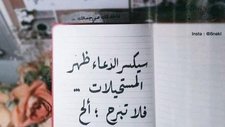 Insta : @6naki
سيكسر الدعاء ظهر
المستحيلات ..
فلا تبرح ؛ ألح